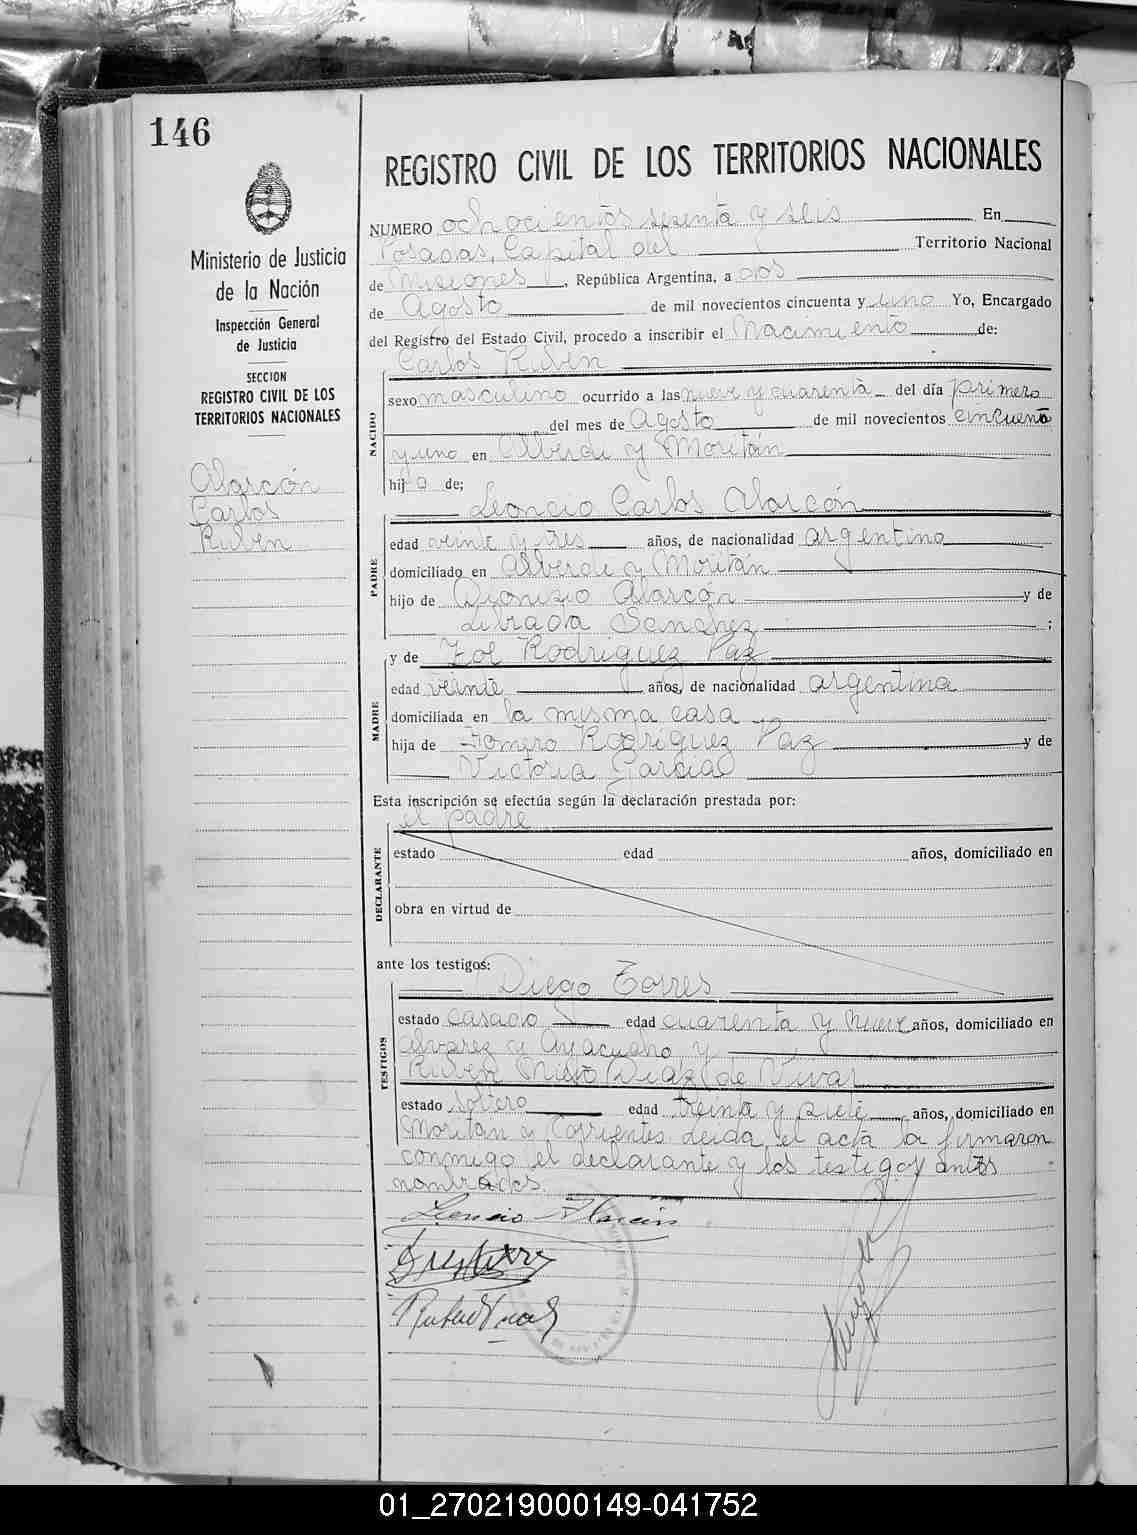 146
REGISTRO CIVIL DE LOS TERRITORIOS NACIONALES
Ministerio de Justicia
de la Nación
Inspección General
de Justicia
SECCION
REGISTRO CIVIL DE LOS
TERRITORIOS NACIONALES
Alarcón
Carlos
Rubén
NUMERO ochocientos sesenta y seis En
Posadas, Capital del Territorio Nacional
de Misiones, República Argentina, a dos
de Agosto de mil novecientos cincuenta y uno Yo, Encargado
del Registro del Estado Civil, procedo a inscribir el Nacimiento de:
Carlos Rubén
NACIDO
sexo masculino ocurrido a las nueve y cuarenta del día primero
del mes de Agosto de mil novecientos cincuenta
y uno en Alberdi y Moritán
hijo de;
Leoncio Carlos Alarcón
PADRE
edad veinte y tres años, de nacionalidad argentina
domiciliado en Alberdi y Moritán
hijo de Dionisio Alarcón y de
Librada Sanchez ;
y de Zoe Rodriguez Paz
MADRE
edad veinte años, de nacionalidad argentina
domiciliada en la misma casa
hija de Romero Rodriguez Paz y de
Victoria Garcia
Esta inscripción se efectúa según la declaración prestada por:
el padre
DECLARANTE
estado edad años, domiciliado en
obra en virtud de
ante los testigos:
Diego Torres
TESTIGOS
estado casado edad cuarenta y nueve años, domiciliado en
Alvarez y Ayacucho y
Ruben Diaz de Vivar
estado soltero edad treinta y siete años, domiciliado en
Moritan y Corrientes Leida el acta la firmaron
conmigo el declarante y los testigos antes
nombrados.
Leoncio Alarcón
01_270219000149-041752